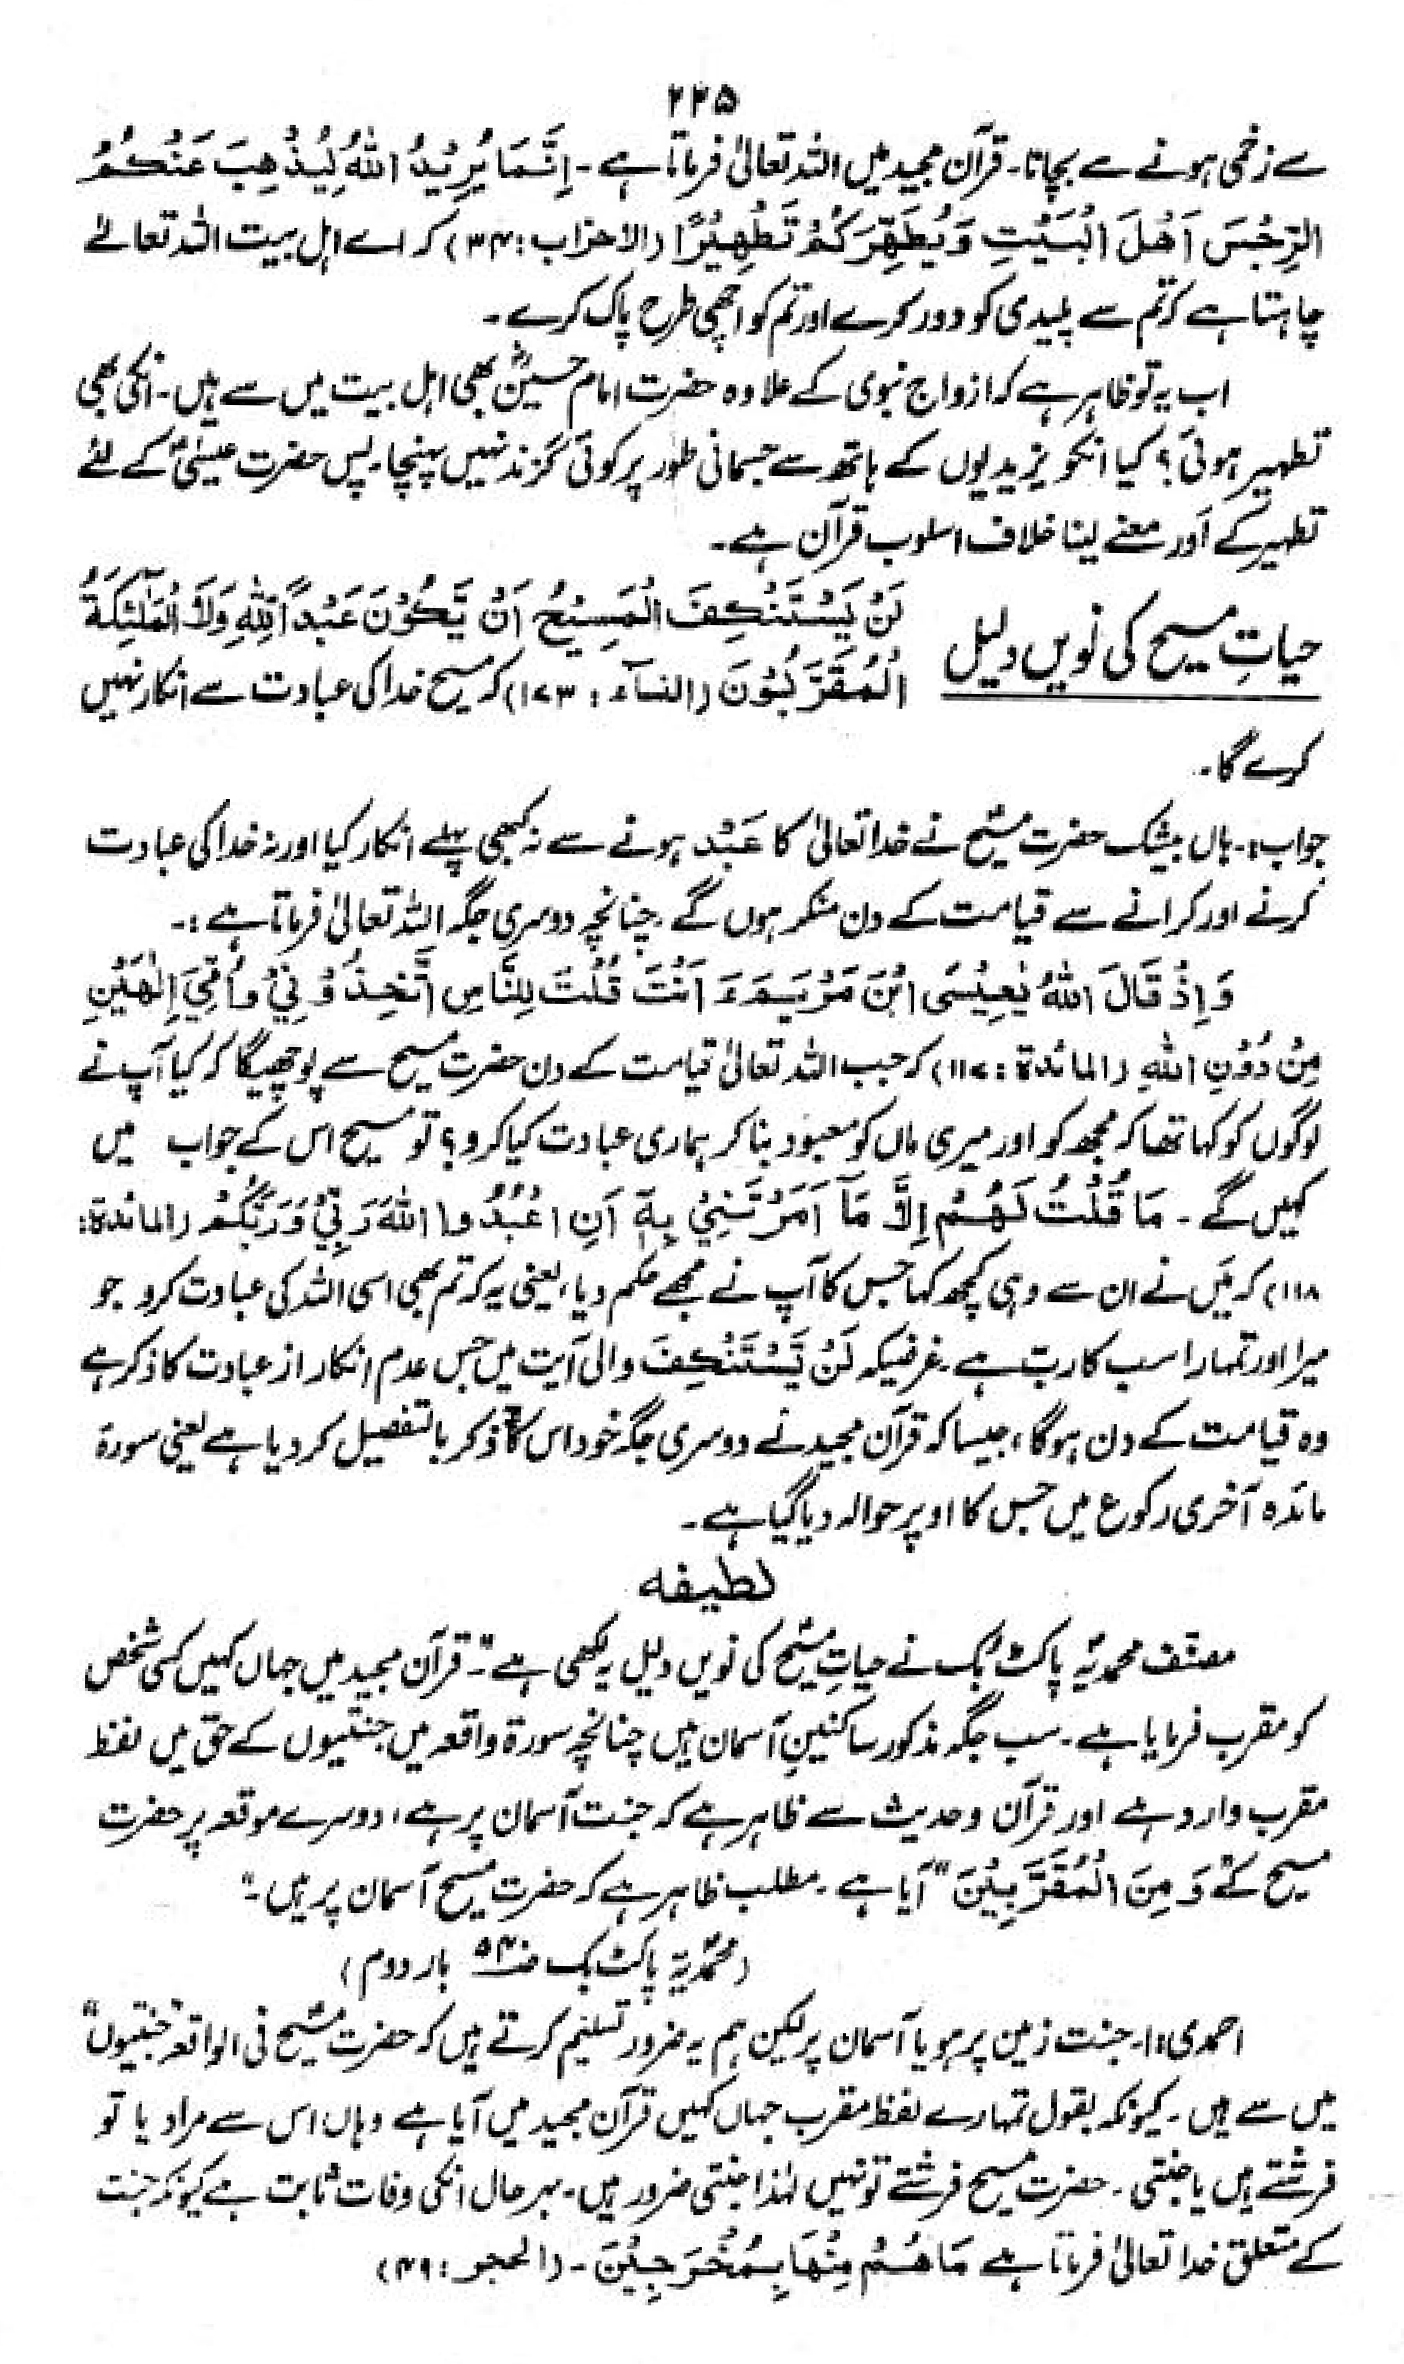 ۲۲۵
سے زخمی ہونے سے بچاتا۔ قرآن مجید میں اللہ تعالیٰ فرماتا ہے۔ اِنَّمَا یُرِیْدُ اللّٰہُ لِیُذْھِبَ عَنْکُمُ
الرِّجْسَ اَھْلَ الْبَیْتِ وَیُطَھِّرَکُمْ تَطْھِیْرًا (الاحزاب: ۳۴) کہ اے اہل بیت اللہ تعالےٰ
چاہتا ہے کہ تم سے پلیدی کو دور کرے اور تم کو اچھی طرح پاک کرے۔
اب یہ تو ظاہر ہے کہ ازواج نبوی کے علاوہ حضرت امام حسینؓ بھی اہل بیت میں سے ہیں۔ انکی بھی
تطہیر ہوئی؟ کیا انکو یزیدیوں کے ہاتھ سے جسمانی طور پر کوئی گزند نہیں پہنچا۔ پس حضرت عیسیٰؑ کے لئے
تطہیر کے اَور معنے لینا خلاف اسلوب قرآن ہے۔
حیاتِ مسیح کی نویں دلیل
لَنْ یَّسْتَنْکِفَ الْمَسِیْحُ اَنْ یَّکُوْنَ عَبْدًا لِّلّٰہِ وَلَا الْمَلٰٓئِکَۃُ
الْمُقَرَّبُوْنَ (النسآء: ۱۷۳) کہ مسیح خدا کی عبادت سے انکار نہیں
کرے گا۔
جواب:۔ ہاں بیشک حضرت مسیحؑ نے خدا تعالیٰ کا عَبْد ہونے سے نہ کبھی پہلے انکار کیا اور نہ خدا کی عبادت
کرنے اور کرانے سے قیامت کے دن منکر ہوں گے۔ چنانچہ دوسری جگہ اللہ تعالیٰ فرماتا ہے:۔
وَاِذْ قَالَ اللّٰہُ یٰعِیْسَی ابْنَ مَرْیَمَ ءَ اَنْتَ قُلْتَ لِلنَّاسِ اتَّخِذُوْنِیْ وَاُمِّیَ اِلٰھَیْنِ
مِنْ دُوْنِ اللّٰہِ (المائدۃ: ۱۱۷) کہ جب اللہ تعالیٰ قیامت کے دن حضرت مسیح سے پوچھیگا کہ کیا آپ نے
لوگوں کو کہا تھا کہ مجھ کو اور میری ماں کو معبود بنا کر ہماری عبادت کیا کرو؟ تو مسیح اس کے جواب میں
کہیں گے۔ مَا قُلْتُ لَھُمْ اِلَّا مَآ اَمَرْتَنِیْ بِہٖٓ اَنِ اعْبُدُوا اللّٰہَ رَبِّیْ وَرَبَّکُمْ (المائدۃ:
۱۱۸) کہ مَیں نے ان سے وہی کچھ کہا جس کا آپ نے مجھے حکم دیا، یعنی یہ کہ تم بھی اسی اللہ کی عبادت کرو جو
میرا اور تمہارا سب کا ربّ ہے۔ غرضیکہ لَنْ یَّسْتَنْکِفَ والی آیت میں جس عدم انکار از عبادت کا ذکر ہے
وہ قیامت کے دن ہوگا، جیسا کہ قرآن مجید نے دوسری جگہ خود اس کا ذکر بالتفصیل کر دیا ہے یعنی سورۃ
مائدہ آخری رکوع میں جس کا اوپر حوالہ دیا گیا ہے۔
لطیفہ
مصنّف محمدیہ پاکٹ بک نے حیاتِ مسیحؑ کی نویں دلیل یہ لکھی ہے:۔ "قرآن مجید میں جہاں کہیں کسی شخص
کو مقرب فرمایا ہے۔ سب جگہ مذکور ساکنینِ آسمان ہیں چنانچہ سورۃ واقعہ میں جنتیوں کے حق میں لفظ
مقرب وارد ہے اور قرآن و حدیث سے ظاہر ہے کہ جنت آسمان پر ہے، دوسرے موقعہ پر حضرت
مسیح کے "وَ مِنَ الْمُقَرَّبِیْنَ" آیا ہے۔ مطلب ظاہر ہے کہ حضرت مسیح آسمان پر ہیں۔"
(محمّدیہ پاکٹ بک صفحہ ۵۴۰ بار دوم)
احمدی:۱۔ جنت زمین پر ہو یا آسمان پر لیکن ہم یہ ضرور تسلیم کرتے ہیں کہ حضرت مسیحؑ فی الواقعہ "جنتیوں"
میں سے ہیں۔ کیونکہ بقول تمہارے لفظ مقرب جہاں کہیں قرآن مجید میں آیا ہے وہاں اس سے مراد یا تو
فرشتے ہیں یا جنتی۔ حضرت مسیح فرشتے تو نہیں لہٰذا جنتی ضرور ہیں۔ بہرحال انکی وفات ثابت ہے کیونکہ جنت
کے متعلق خدا تعالیٰ فرماتا ہے مَا ھُمْ مِنْھَا بِمُخْرَجِیْنَ۔ (الحجر: ۴۹)